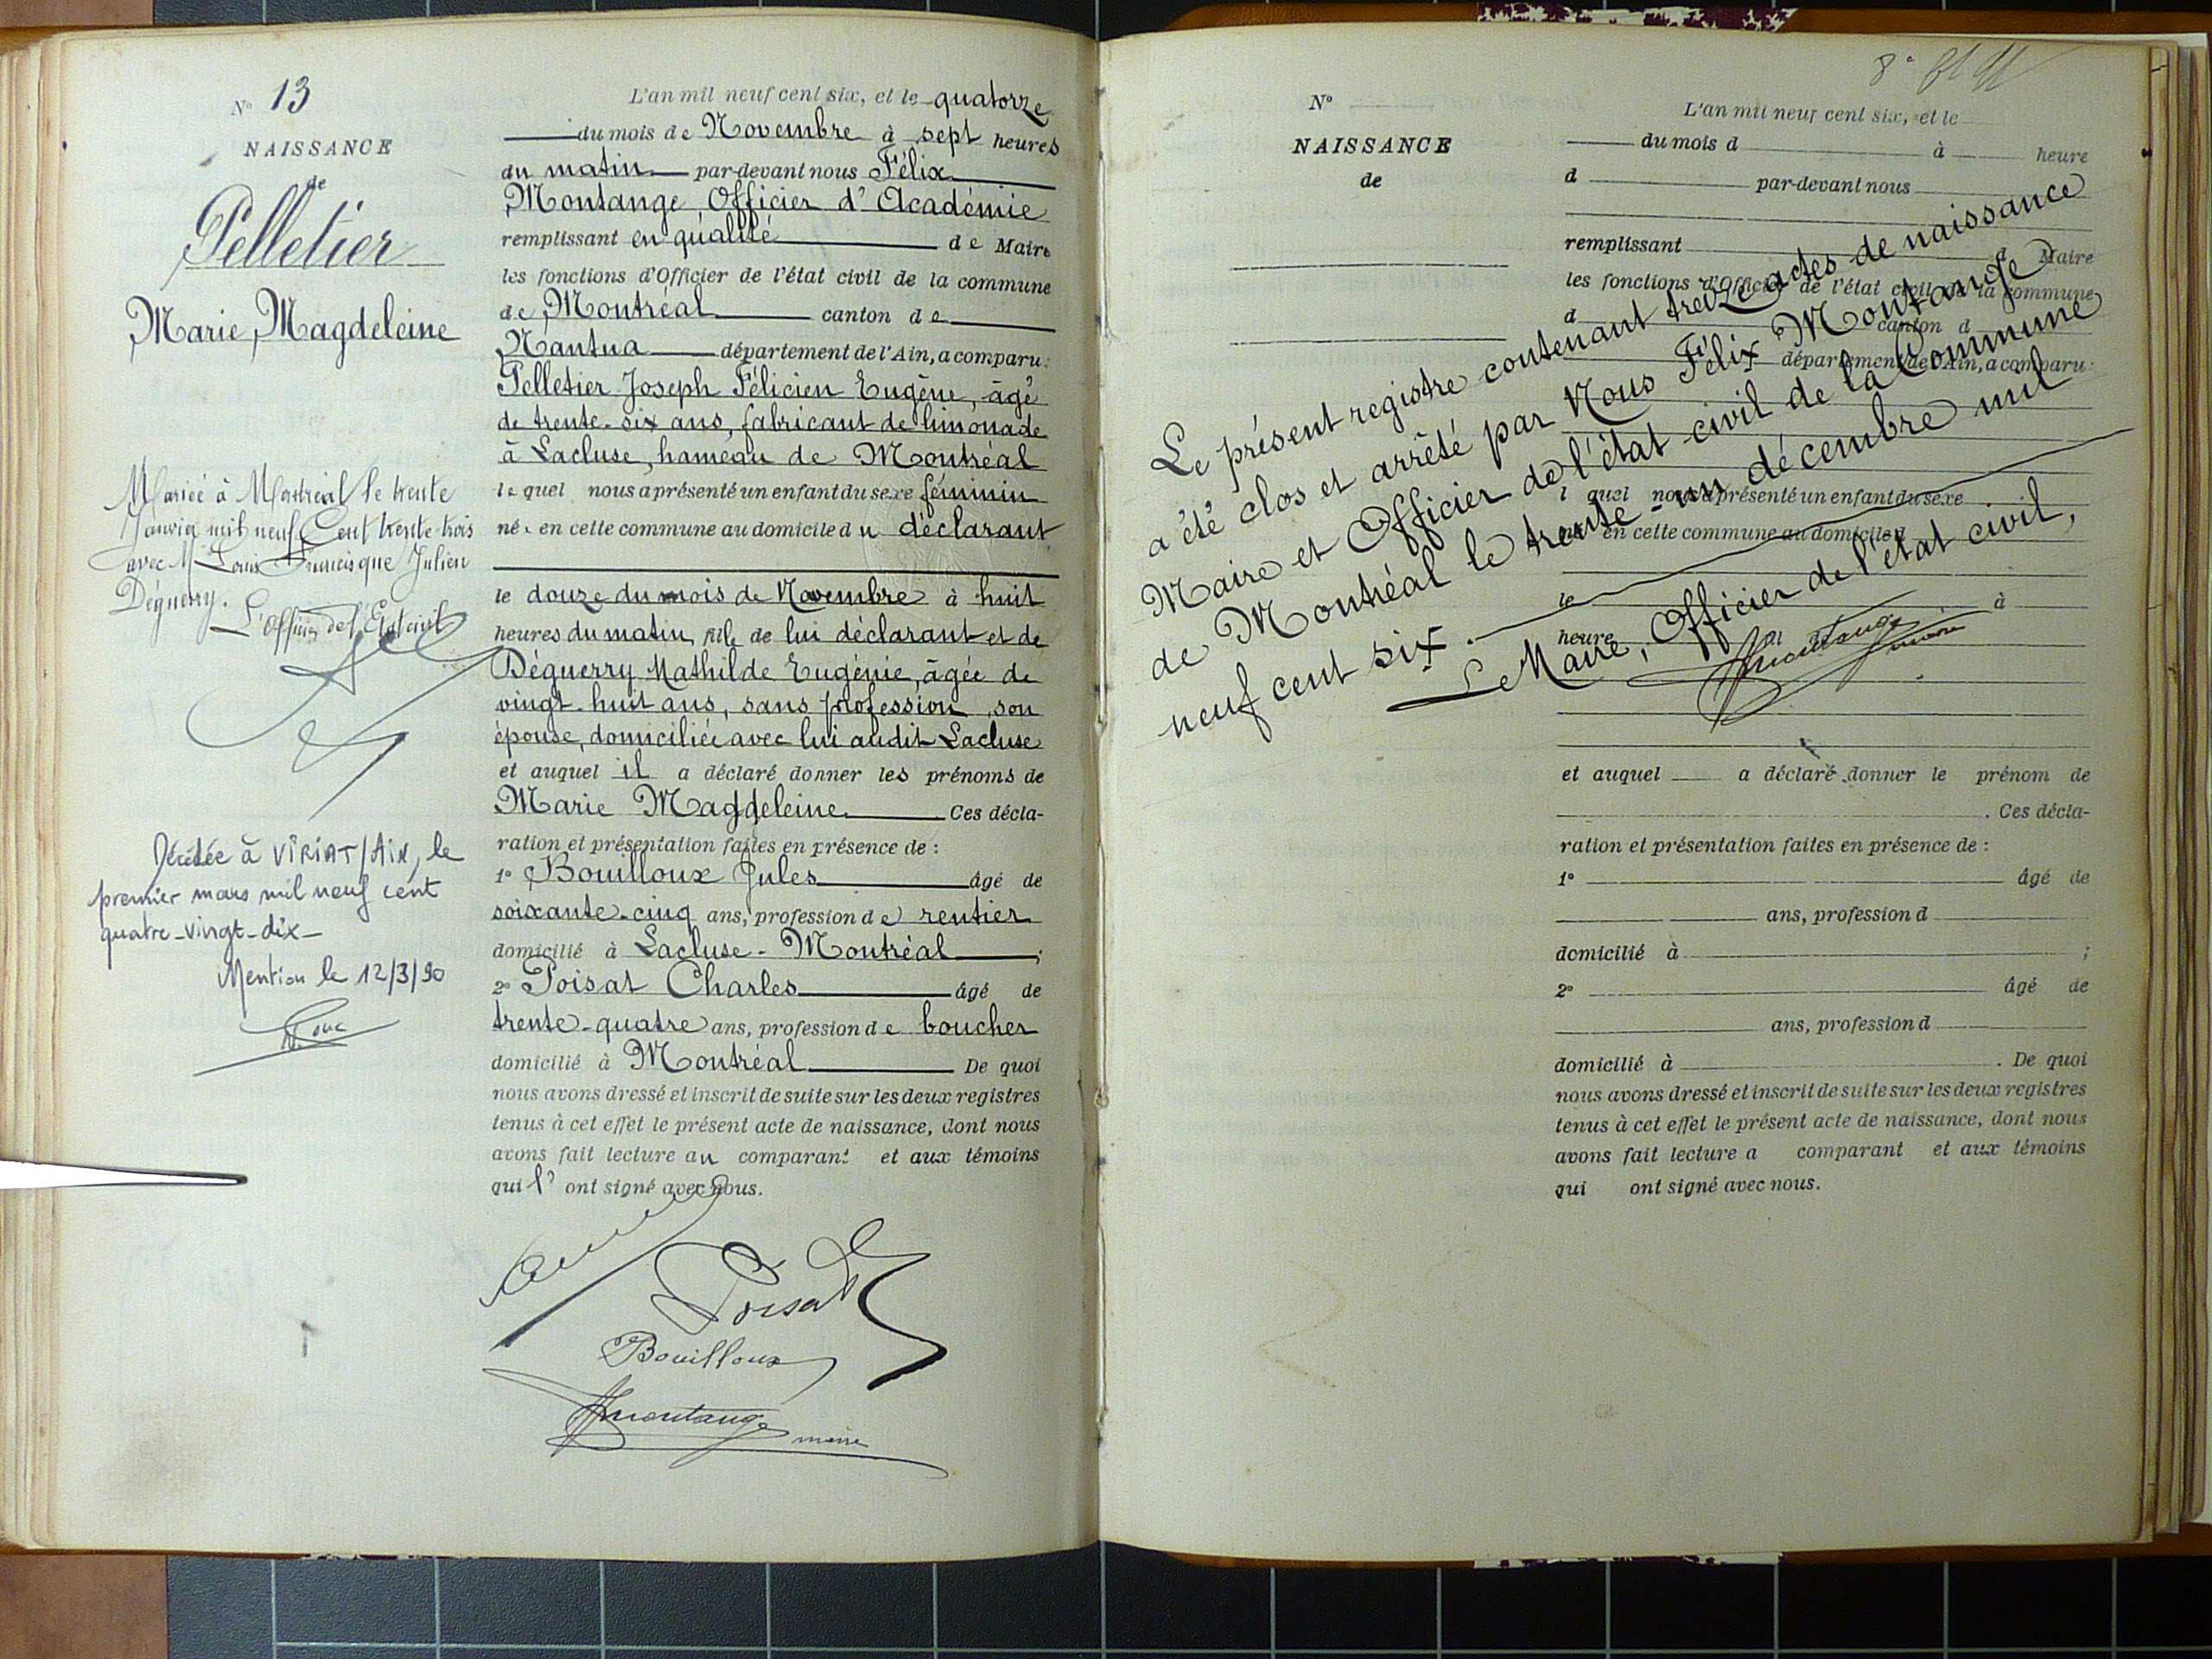 N° 13
NAISSANCE
de
Pelletier
Marie Magdeleine
Mariée à Montréal le trente
Janvier mil neuf Cent trente-trois
avec M Louis Francisque Julien
Déguerry.
L'Officier de l'Etat civil
Décédée à VIRIAT/AIN, le
premier mars mil neuf cent
quatre-vingt-dix-
Mention le 12/3/90
L'an mil neuf cent six, et le quatorze
du mois de Novembre à sept heures
du matin par-devant nous Félix
Montange Officier d'Académie
remplissant en qualité de Maire
les fonctions d'Officier de l'état civil de la commune
de Montréal canton de
Nantua département de l'Ain, a comparu:
Pelletier Joseph Félicien Eugène, âgé
de trente-six ans, fabricant de limonade
à Lacluse, hameau de Montréal
lequel nous a présenté un enfant du sexe féminin
né en cette commune au domicile du déclarant
le douze du mois de Novembre à huit
heures du matin, fille de lui déclarant et de
Déguerry Mathilde Eugénie, âgée de
vingt-huit ans, sans profession, son
épouse, domiciliée avec lui audit Lacluse
et auquel il a déclaré donner les prénoms de
Marie Magdeleine Ces décla-
ration et présentation faites en présence de :
1° Bouilloux Jules âgé de
soixante-cinq ans, profession de rentier
domicilié à Lacluse-Montréal ;
2° Poisat Charles âgé de
trente-quatre ans, profession de boucher
domicilié à Montréal De quoi
nous avons dressé et inscrit de suite sur les deux registres
tenus à cet effet le présent acte de naissance, dont nous
avons fait lecture au comparant et aux témoins
qui l' ont signé avec nous.
Poisat
Bouilloux
Montange maire
N°
NAISSANCE
de
L'an mil neuf cent six, et le
du mois d à heure
d par-devant nous
remplissant d Maire
les fonctions d'Officier de l'état civil de la commune
d canton d
département de l'Ain, a comparu:
l quel nous a présenté un enfant du sexe
né en cette commune au domicile d
le à
heure
Le présent registre contenant treize actes de naissance
a été clos et arrêté par Nous Félix Montange
Maire et Officier de l'état civil de la Commune
de Montréal le trente-un décembre mil
neuf cent six.
Le Maire, Officier de l'état civil,
Montange maire
et auquel a déclaré donner le prénom de
. Ces décla-
ration et présentation faites en présence de :
1° âgé de
ans, profession d
domicilié à ;
2° âgé de
ans, profession d
domicilié à . De quoi
nous avons dressé et inscrit de suite sur les deux registres
tenus à cet effet le présent acte de naissance, dont nous
avons fait lecture a comparant et aux témoins
qui ont signé avec nous.